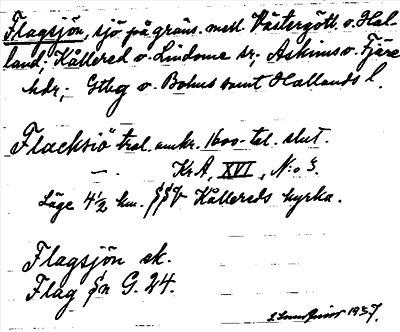 Flagsjön, sjö på gräns. mell. Västergötl. o. Hal-
land; Kållered o. Lindome sr; Askims o. Fjäre
hdr; Gtbg o. Bohus samt Hallands l.
"Flacksiö" trol. omkr. 1600-tal. slut.
—.— KrA, XVI, N:o 3.
Läge 4 1/2 km. SSV Kållereds kyrka.
Flagsjön ek.
Flag Sn G. 24.
1937.